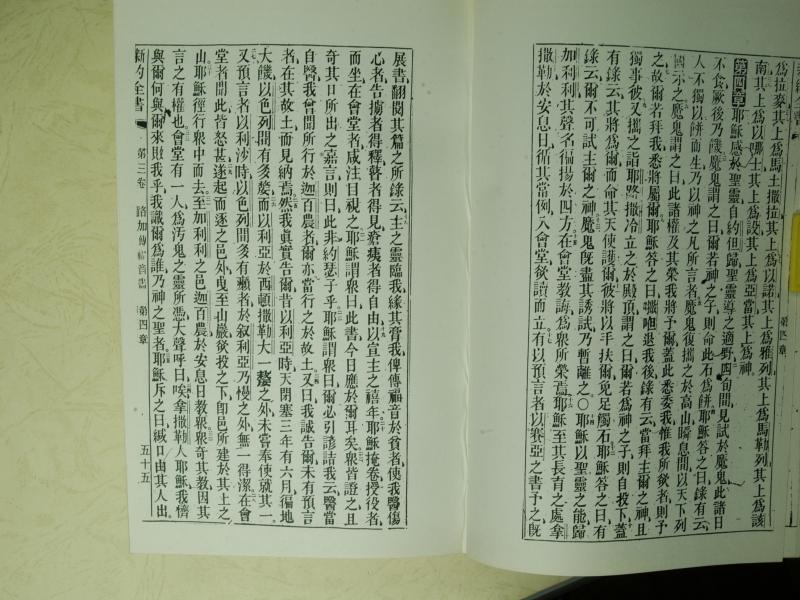 爲拉麥其上爲馬土撒拉其上爲以諾其上爲雅列其上爲馬勒列其上爲該
南其上爲以挪士其上爲設其上爲亞當其上爲神
第四章 耶穌感於聖靈自約但歸聖靈導之適野四旬間見試於魔鬼此諸日
不食厥後乃饑魔鬼謂之曰爾若神之子則命此石爲餅耶穌答之曰錄有云
人不獨以餅而生乃以神之凡所言者魔鬼復攜之於高山瞬息間以天下列
國示之魔鬼謂之曰此諸權及其榮我將予爾蓋此悉委我惟我所欲者則予
之故爾若拜我悉將屬爾耶穌答之曰撒呾退我後錄有云當拜主爾之神且
獨事彼又攜之詣耶路撒冷立之於殿頂謂之曰爾若爲神之子則自投下蓋
有錄云其將爲爾而命其天使護爾彼將以手扶爾免足觸石耶穌答之曰有
錄云爾不可試主爾之神魔鬼旣盡其誘試乃暫離之〇耶穌以聖靈之能歸
加利利其聲名徧揚於四方在會堂教誨爲衆所榮焉耶穌至其長育之處拿
撒勒於安息日循其當例入會堂欲讀而立有以預言者以賽亞之書予之旣
展書翻閱其篇之所錄云主之靈臨我緣其膏我俾傳福音於貧者使我醫傷
心者告擄者得釋瞽者得見瘡痍者得自由以宣主之禧年耶穌掩卷授役者
而坐在會堂者咸注目視之耶穌謂衆曰此書今日應於爾耳矣衆皆證之且
奇其口所出之嘉言則曰此非約瑟子乎耶穌謂衆曰爾必引諺詰我云醫當
自醫我會聞所行於迦百農者爾亦當行之於故土又曰我誠告爾未有預言
者在其故土而見納焉然我眞實告爾昔以利亞時天閉塞三年有六月徧地
大饑以色列間有多嫠而以利亞於西頓撒勒大一嫠之外未嘗奉使就其一
又預言者以利沙時以色列間多有癩者於叙利亞乃慢之外無一得潔在會
堂者聞此皆怒甚遂起而逐之邑外曳至山巖欲投之下卽邑所建於其上之
山耶穌徑行衆中而去至加利利之邑迦百農於安息日教衆衆奇其教因其
言之有權也會堂有一人爲汚鬼之靈所憑大聲呼曰唉拿撒勒人耶穌我儕
與爾何與爾來敗我乎我識爾爲誰乃神之聖者耶穌斥之曰緘口由其人出
新約全書 第三卷 路加傳福音書 第四章 五十五